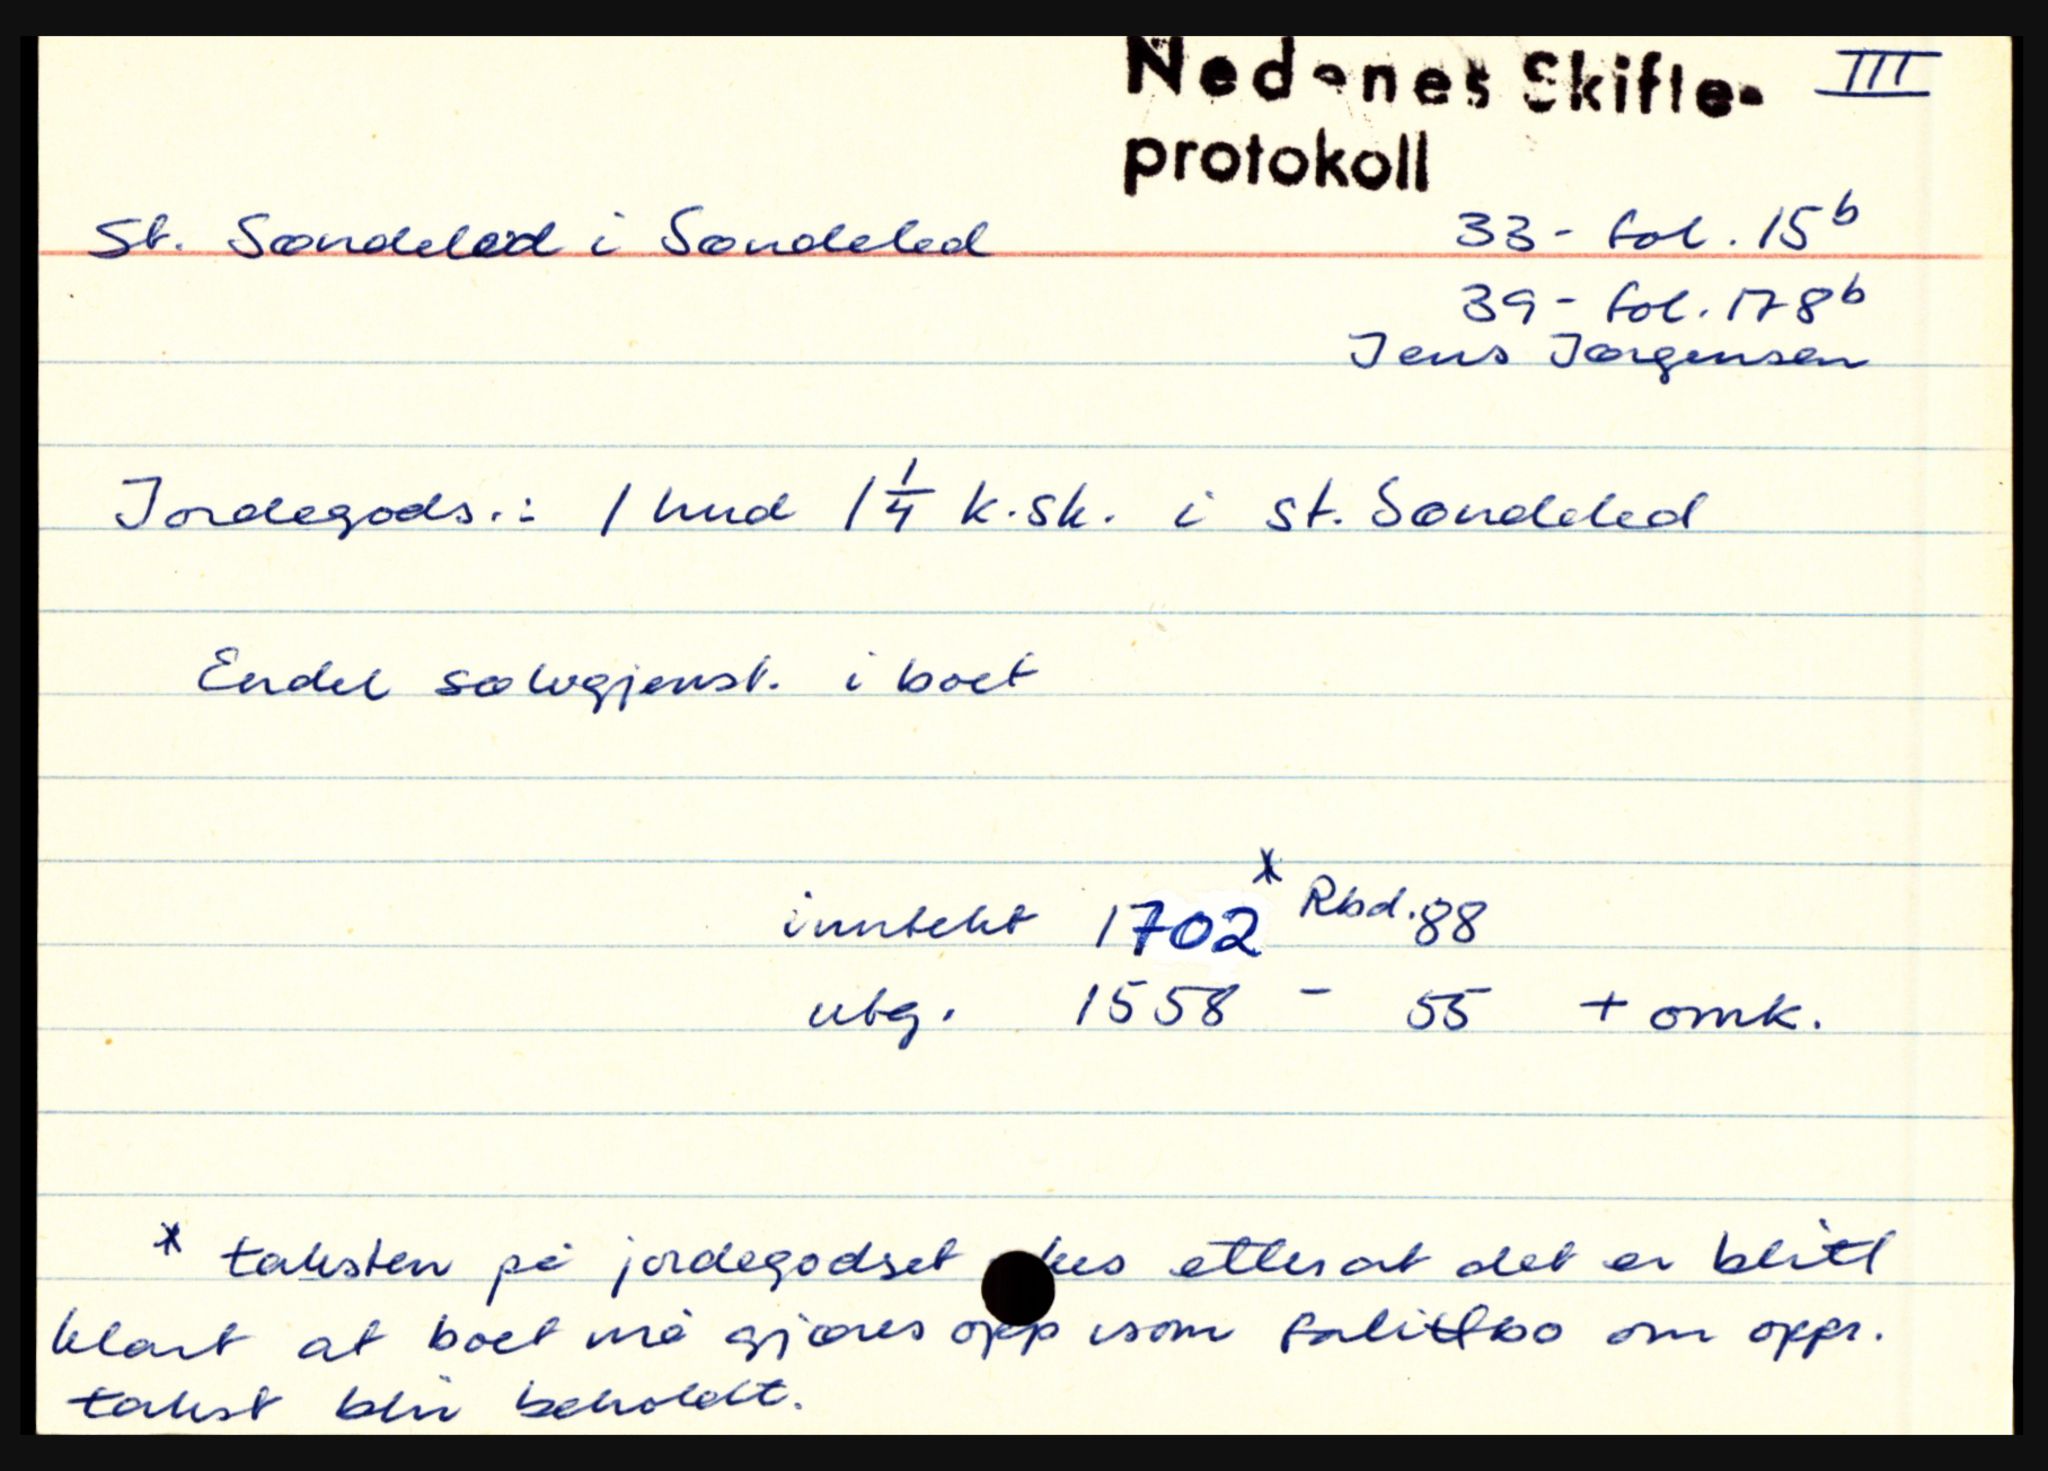 Nedenes Skifte- III
protokoll
St. Søndeled i Søndeled 33 - fol. 15b
39 - fol. 178b
Jens Jørgensen
Jordegods.: 1 hud 1 1/4 k.sk. i st. Søndeled
Endel sølvgjenst. i boet
inntekt 1702* Rbd. 88
utg. 1558 - 55 + omk.
* taksten på jordegodset etterat det er blitt
klart at boet må gjøres opp som fallittbo om oppr.
takst blir beholdt.